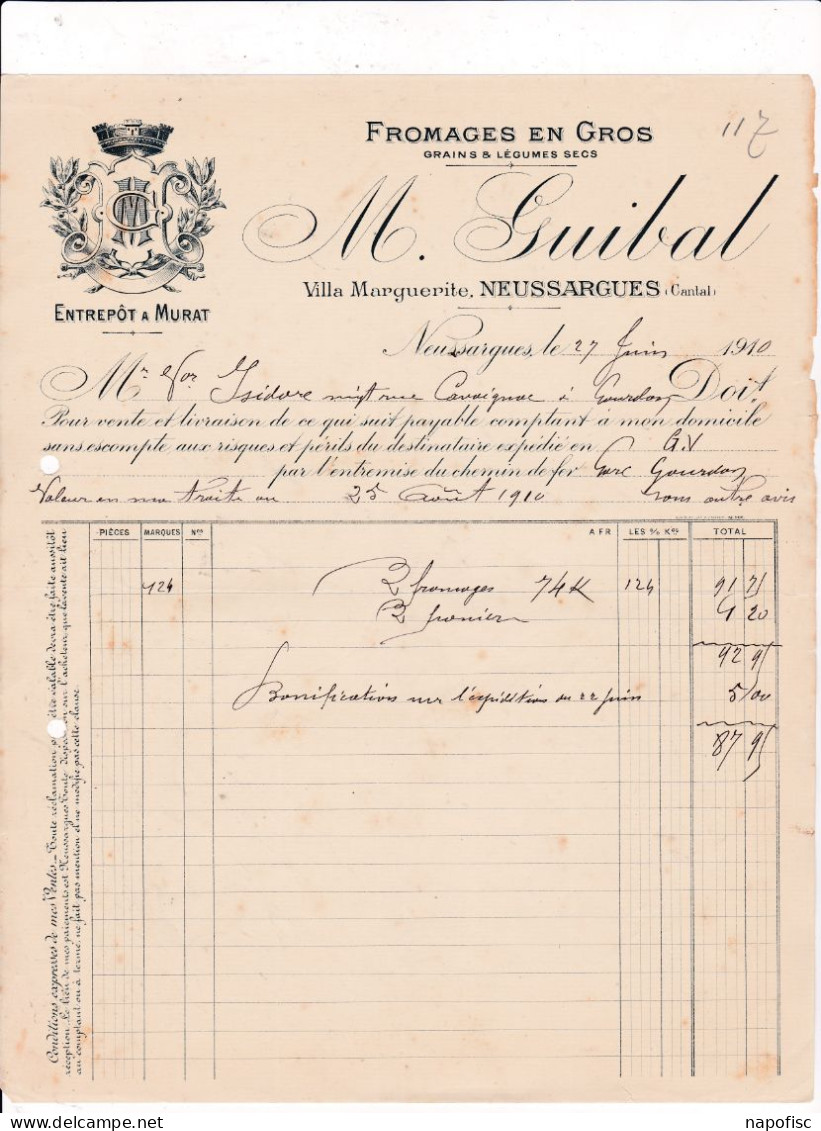 FROMAGES EN GROS
117
GRAINS & LÉGUMES SECS
M. Guibal
Villa Marguerite, NEUSSARGUES (Cantal)
ENTREPÔT A MURAT
Neussargues, le 27 Juin 1910
Mr Isidore rue Cavaignac à Gourdon Doit
Pour vente et livraison de ce qui suit payable comptant à mon domicile
sans escompte aux risques et périls du destinataire expédié en G.V
par l'entremise du chemin de fer Gare Gourdon
Valeur en ma traite au 25 Août 1910 sans autre avis
PIÈCES MARQUES Nos A FR LES % Kos TOTAL
124 2 fromages 74K 124 91 75
2 1 20
92 95
Bonification sur l'expédition du 22 Juin 5 00
87 95
Conditions expresses de mes Ventes. _ Toute réclamation pour être valable devra être faite aussitôt
réception. Le lieu de mes paiements est Neussargues. Toute disposition sur l'acheteur, que la vente ait lieu
au comptant ou à terme, ne fait pas mention et ne modifie pas cette clause.
delcampe.net
napofisc